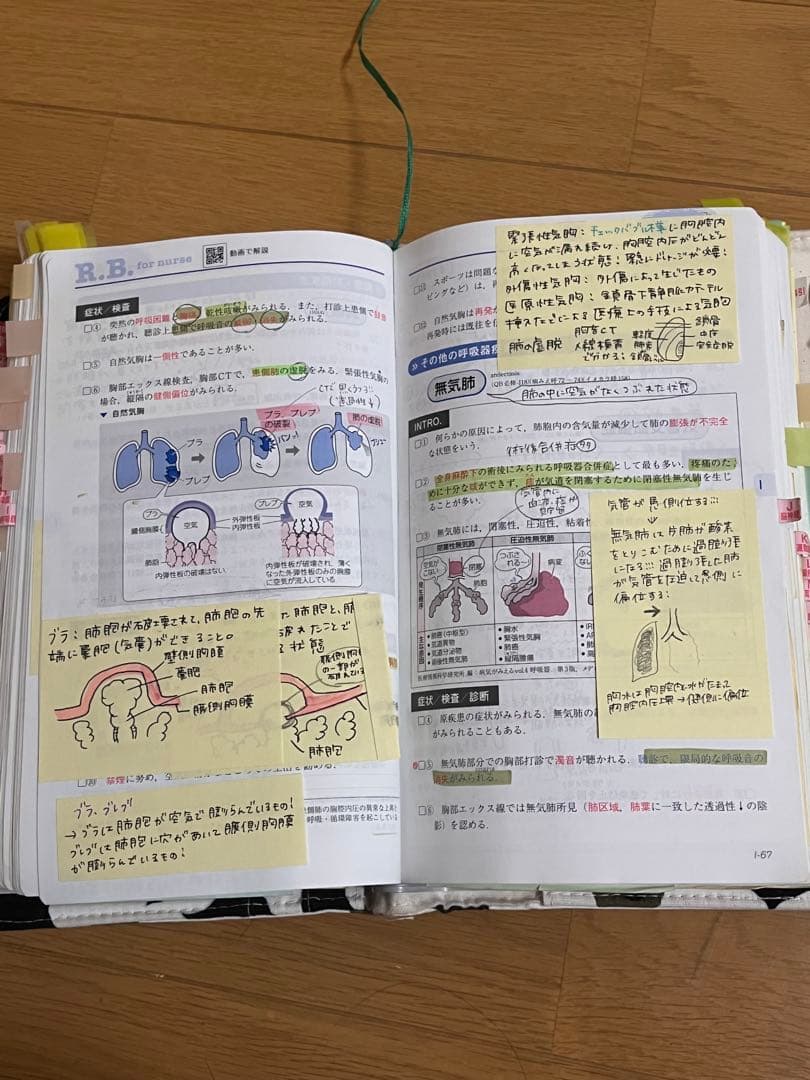 R.B. for nurse
動画で解説
症状／検査
□④ 突然の呼吸困難と胸痛，乾性咳嗽がみられる．また，打診上患側で
が聴かれ，聴診上患側で呼吸音の減弱，消失がみられる．
□⑤ 自然気胸は一側性であることが多い．
□⑥ 胸部エックス線検査，胸部CTで，患側肺の虚脱をみる．緊張性気胸の
場合，縦隔の健側偏位がみられる．
CTで黒くうつる
▼自然気胸
ブラ，ブレブ
の破裂
肺の虚脱
ブラ
パンッ!
ブレブ
ブラ
空気
臓側胸膜
肺胞
内弾性板の破壊はない．
外弾性板
内弾性板
ブレブ
空気
内弾性板が破壊され，薄く
なった外弾性板のみの胸膜
に空気が流入している
ブラ：肺胞が破壊されて、肺胞の先
端に嚢胞(気嚢)ができること。
壁側胸膜
嚢胞
肺胞
臓側胸膜
た肺胞と、肺
れたことで
る状態
臓側胸
の一部が
肺胞
禁煙に努め，
ブラ、ブレブ
→ブラは肺胞が空気で膨らんでいるもの!
ブレブは肺胞に穴があいて臓側胸膜
が膨らんでいるもの!
側肺の胸腔内圧の異常な上昇と
呼吸・循環障害を起こしている
緊張性気胸：チェックバルブ機構に胸腔内
に空気が漏れ続け、胸腔内圧がどんどん
高くなってしまう状態：緊急にドレナージが必要!
外傷性気胸：外傷によって生じたもの
医原性気胸：鎖骨下静脈にカテーテル
挿入などによる医療上の手技による気胸
肺の虚脱
胸部CT
X線検査
で分かる!
軽度
肺尖
鎖骨
中度
完全虚脱
□⑪ スポーツは問題な
ピングなど）は，
□⑫ 自然気胸は再発が
再発時には既往を
≫ その他の呼吸器疾
無気肺
atelectasis
肺の中に空気がなくつぶれた状態
INTRO.
□① 何らかの原因によって，肺胞内の含気量が減少して肺の膨張が不完全
な状態をいう．
術後合併症
□② 全身麻酔下の術後にみられる呼吸器合併症として最も多い．疼痛のた
めに十分な咳ができず，痰が気道を閉塞するために閉塞性無気肺を生じ
ることが多い．
□③ 無気肺には，閉塞性，圧迫性，粘着
閉塞性無気肺
空気がこない
閉塞
肺胞
圧迫性無気肺
つぶされる〜
病変
発生機序
主な原因
• 肺癌（中枢型）
• 気道異物
• 気道分泌物
• 術後性無気肺
• 胸水
• 緊張性気胸
• 肺癌
• 縦隔腫瘍
医療情報科学研究所 編：病気がみえるvol.4 呼吸器．第3版，メデ
気管が患側位する…
↓
無気肺で片肺が酸素
をとりこむために過膨張
になる…過膨張した肺
が気管を圧迫して患側に
偏位する!
→
胸水は胸腔内に水がたまって
胸腔内圧上昇→健側に偏位
症状／検査／診断
□④ 原疾患の症状がみられる．無気肺の
がみられることもある．
□⑤ 無気肺部分での胸部打診で濁音が聴かれる．聴診で，限局的な呼吸音の
消失がみられる．
□⑥ 胸部エックス線では無気肺所見（肺区域，肺葉に一致した透過性↓の陰
影）を認める．
I
I-67